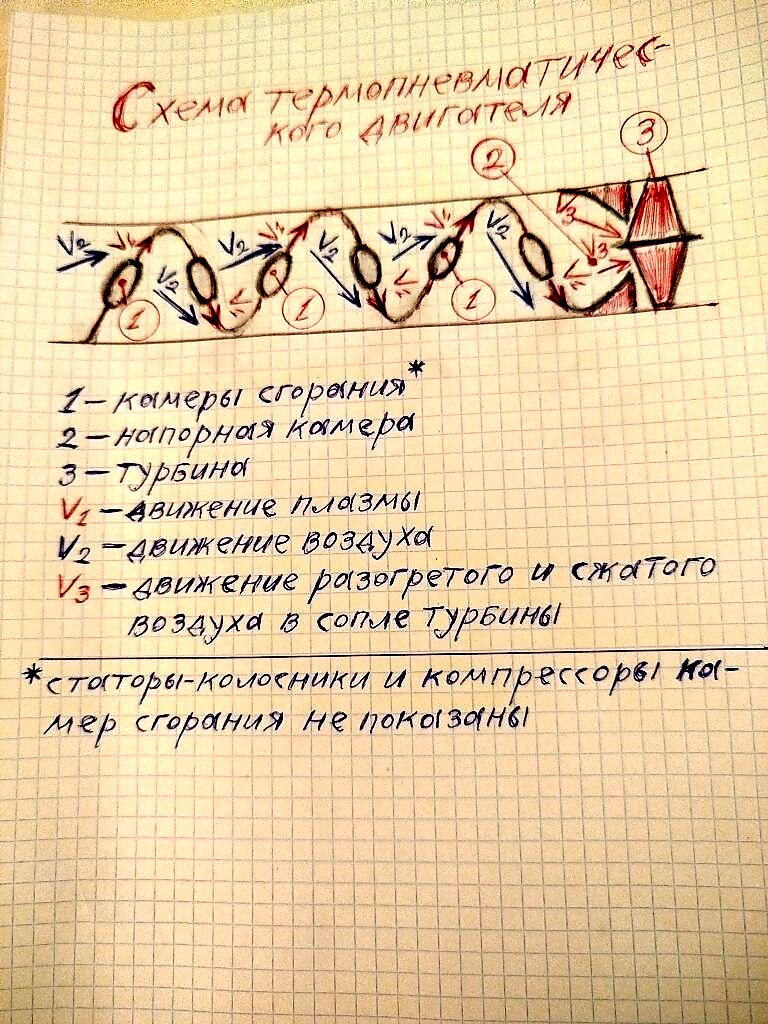 Схема термопневматичес-
кого двигателя
2
3
V₂ V₁ V₂ V₁ V₂ V₂ V₁ V₂ V₃
V₂ V₃
1 1 1
1 – камеры сгорания*
2 – напорная камера
3 – турбина
V₁ – движение плазмы
V₂ – движение воздуха
V₃ – движение разогретого и сжатого
воздуха в сопле турбины
*статоры-колосники и компрессоры ка-
мер сгорания не показаны